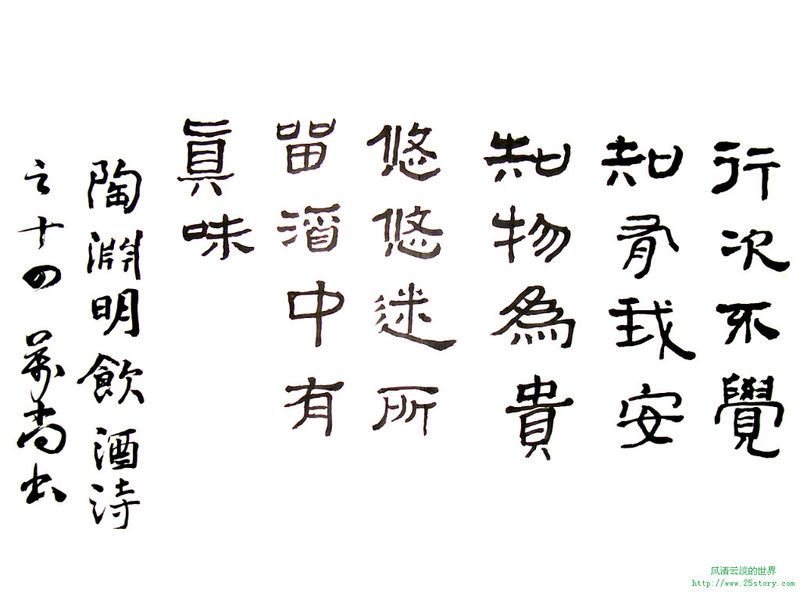 行次不覺
知有我安
知物為貴
悠悠迷所
留酒中有
眞味
陶淵明飲酒詩
之十四
风清云淡的世界
http://www.25story.com